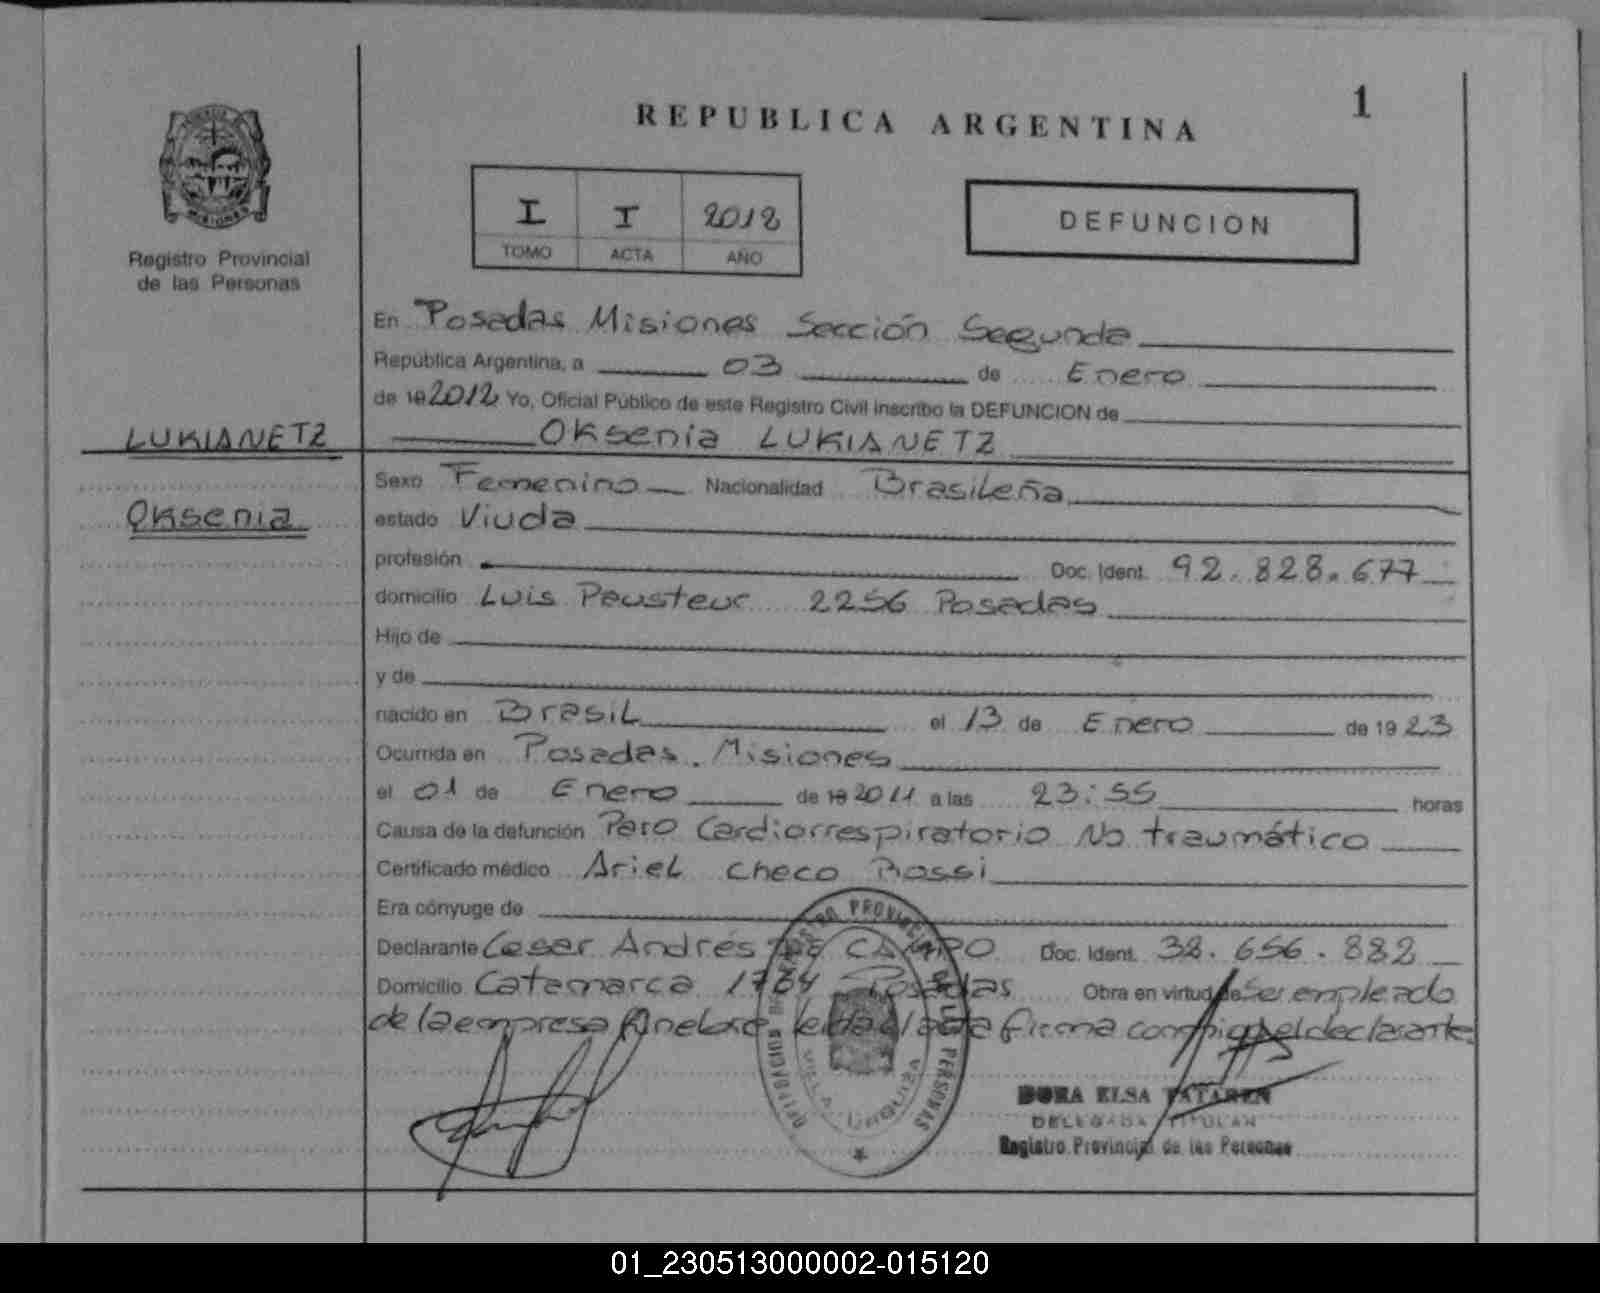 1
REPUBLICA ARGENTINA
I I 2012
TOMO ACTA AÑO
DEFUNCION
MISIONES
Registro Provincial
de las Personas
En Posadas Misiones Sección Segunda
República Argentina, a 03 de Enero
de 19 2012 Yo, Oficial Público de este Registro Civil inscribo la DEFUNCION de
LUKIANETZ
Oksenia LUKIANETZ
Oksenia
Sexo Femenino Nacionalidad Brasileña
estado Viuda
profesión Doc. Ident. 92.828.677
domicilio Luis Peusteur 2256 Posadas
Hijo de
y de
nacido en Brasil el 13 de Enero de 1923
Ocurrida en Posadas. Misiones
el 01 de Enero de 19 2011 a las 23:55 horas
Causa de la defunción Paro Cardiorrespiratorio No traumático
Certificado médico Ariel Checo Rossi
Era cónyuge de
Declarante Cesar Andrés DE CAMPO Doc. Ident. 38.656.882
Domicilio Catamarca 1764 Posadas Obra en virtud de Ser empleado
de la empresa fúnebre leida el acta firma conmigo el declarante.
REGISTRO PROVINCIAL DE LAS PERSONAS
VILLA URQUIZA
DORA ELSA TATAREN
DELEGADA TITULAR
Registro Provincial de las Personas
01_230513000002-015120